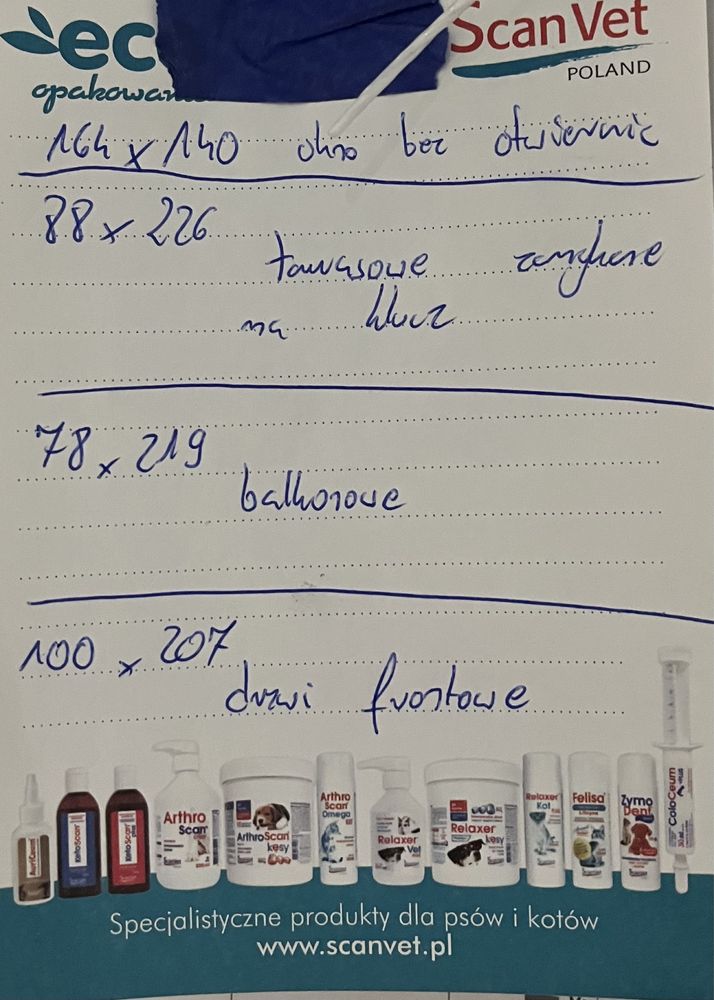 ec
ScanVet
POLAND
opakowani
164 x 140 okno bez otwierania
88 x 226
tarasowe zamykane
na klucz
78 x 219
balkonowe
100 x 207
drzwi frontowe
KetoScan
KetoScan plus
Arthro Scan
ArthroScan kęsy
Arthro Scan Omega
Relaxer Vet
Relaxer kęsy
Relaxer Kot
Felisa
Zymo Dent
ColoCeum PLUS
30 ml
Specjalistyczne produkty dla psów i kotów
www.scanvet.pl